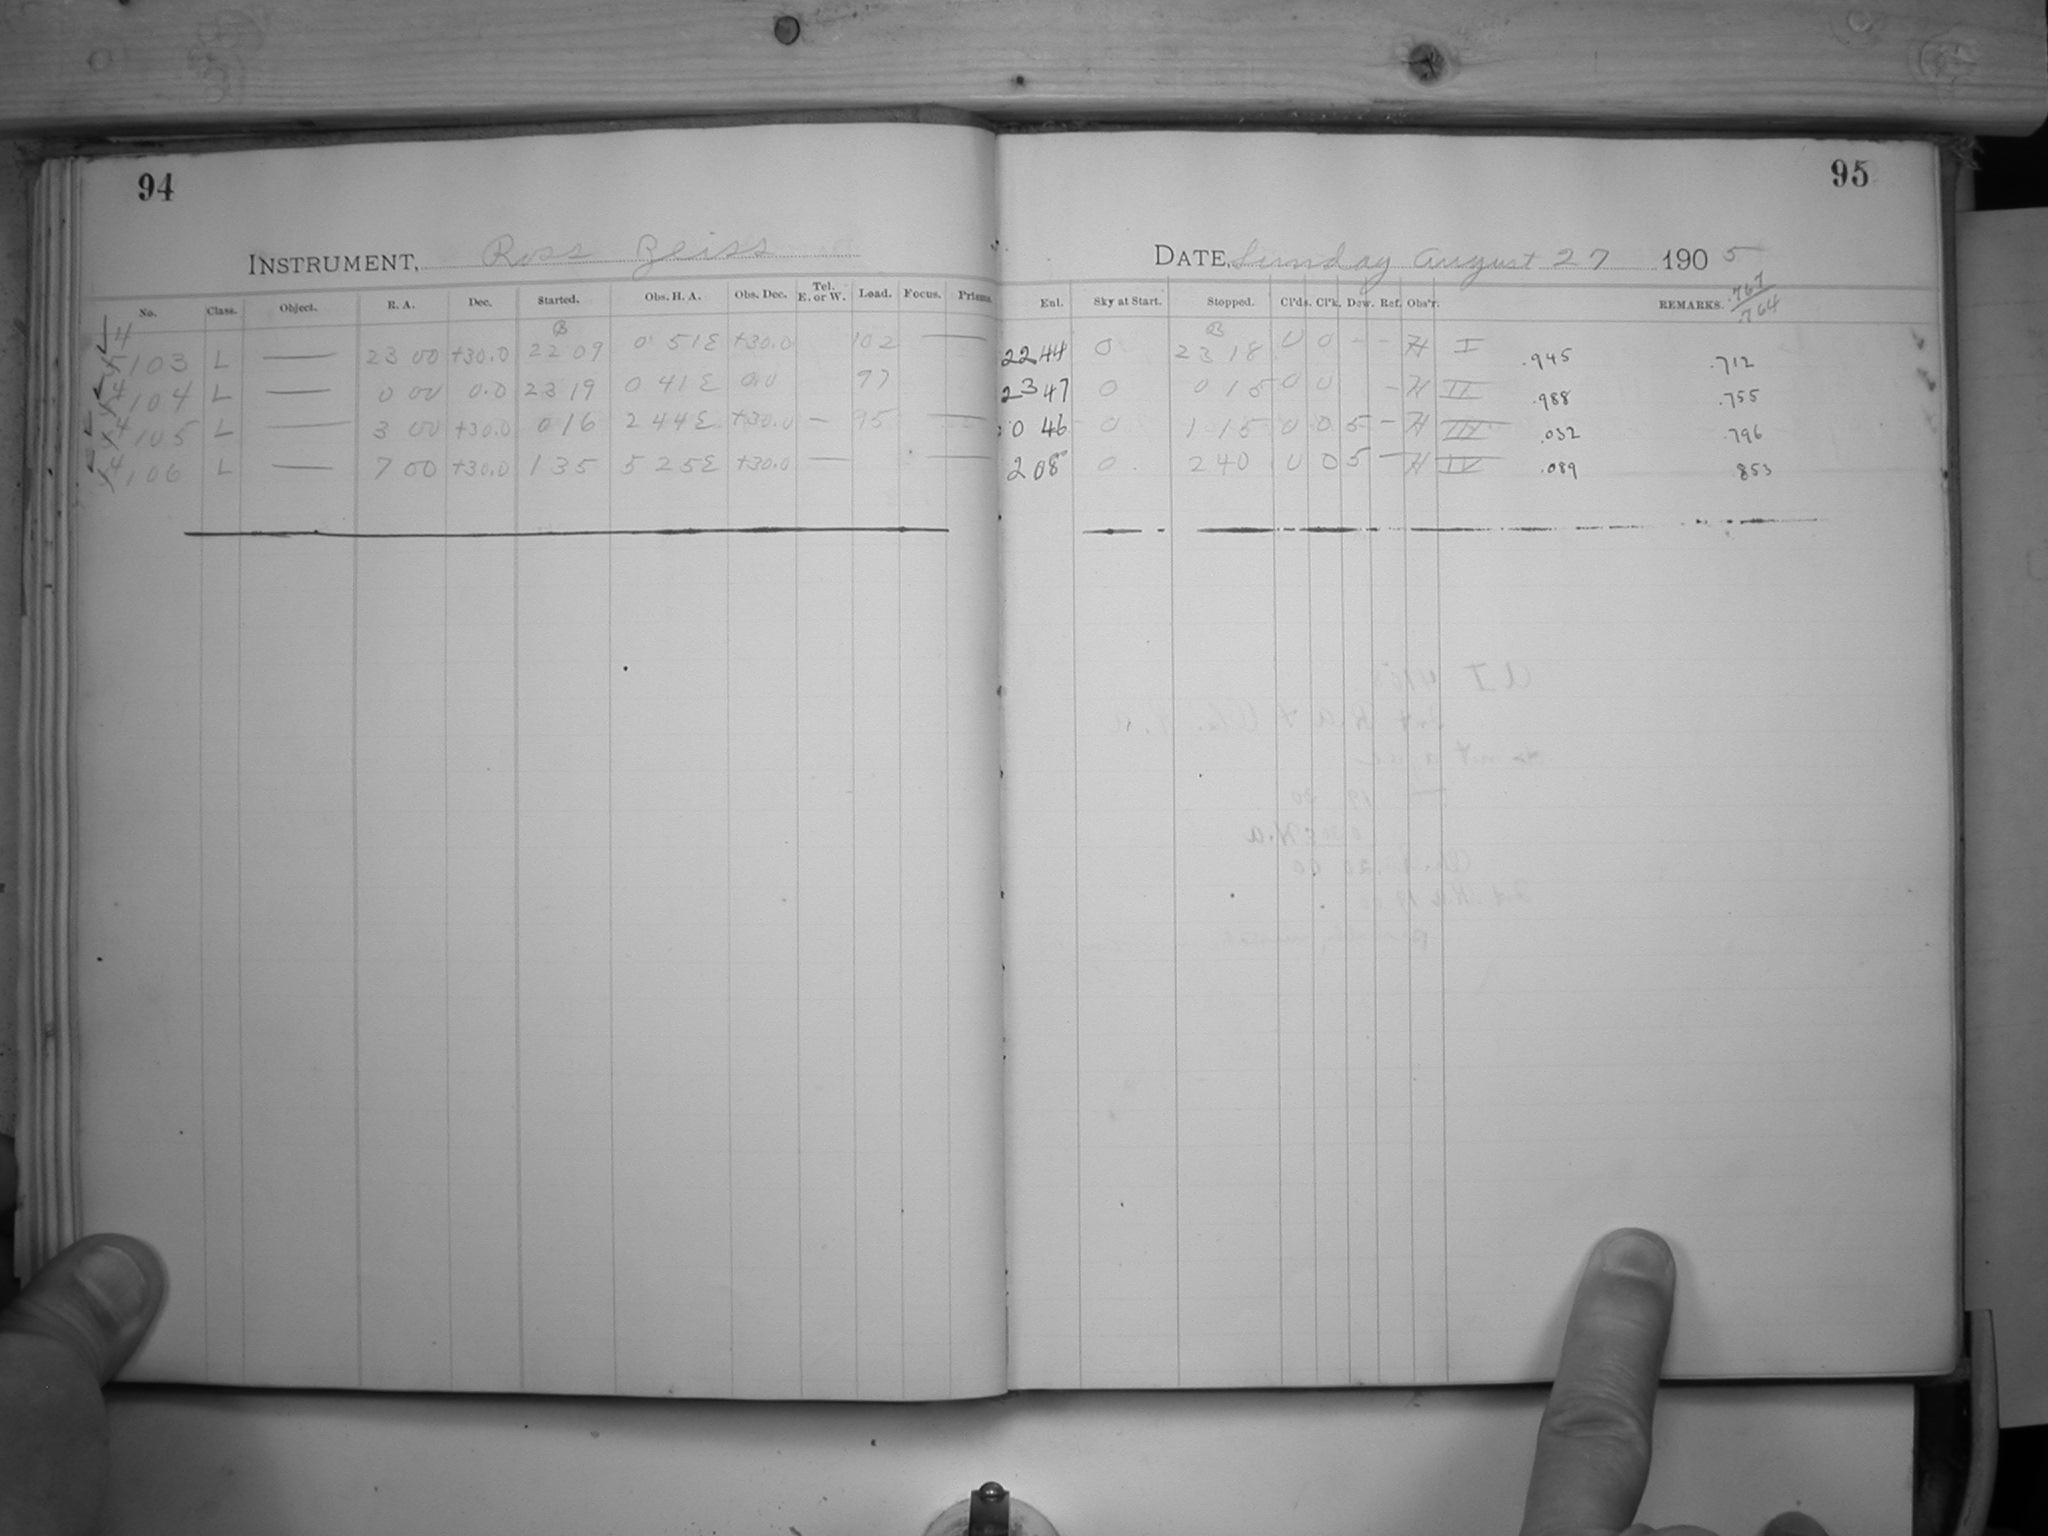 94
INSTRUMENT, Ross Zeiss
No. Class. Object. R. A. Dec. Started. Obs. H. A. Obs. Dec. Tel. E. or W. Load. Focus. Prisms
103 L — 23 00 +30.0 22 09 0 51 E +30.0 102 —
104 L — 0 00 0.0 23 19 0 41 E 0.0 97
105 L — 3 00 +30.0 0 16 2 44 E +30.0 — 95 —
106 L — 7 00 +30.0 1 35 5 25 E +30.0 — —
95
DATE, Sunday August 27 1905
Ent. Sky at Start. Stopped. Cl'ds. Cl'k. Dew. Ref. Obs'r. REMARKS. .767 .764
22 44 0 23 18 0 0 - - H I .945 .712
23 47 0 0 15 0 0 - H II .988 .755
0 46 0 1 15 0 0 5 - H III .032 .796
2 08 0 2 40 0 0 5 - H IV .089 853